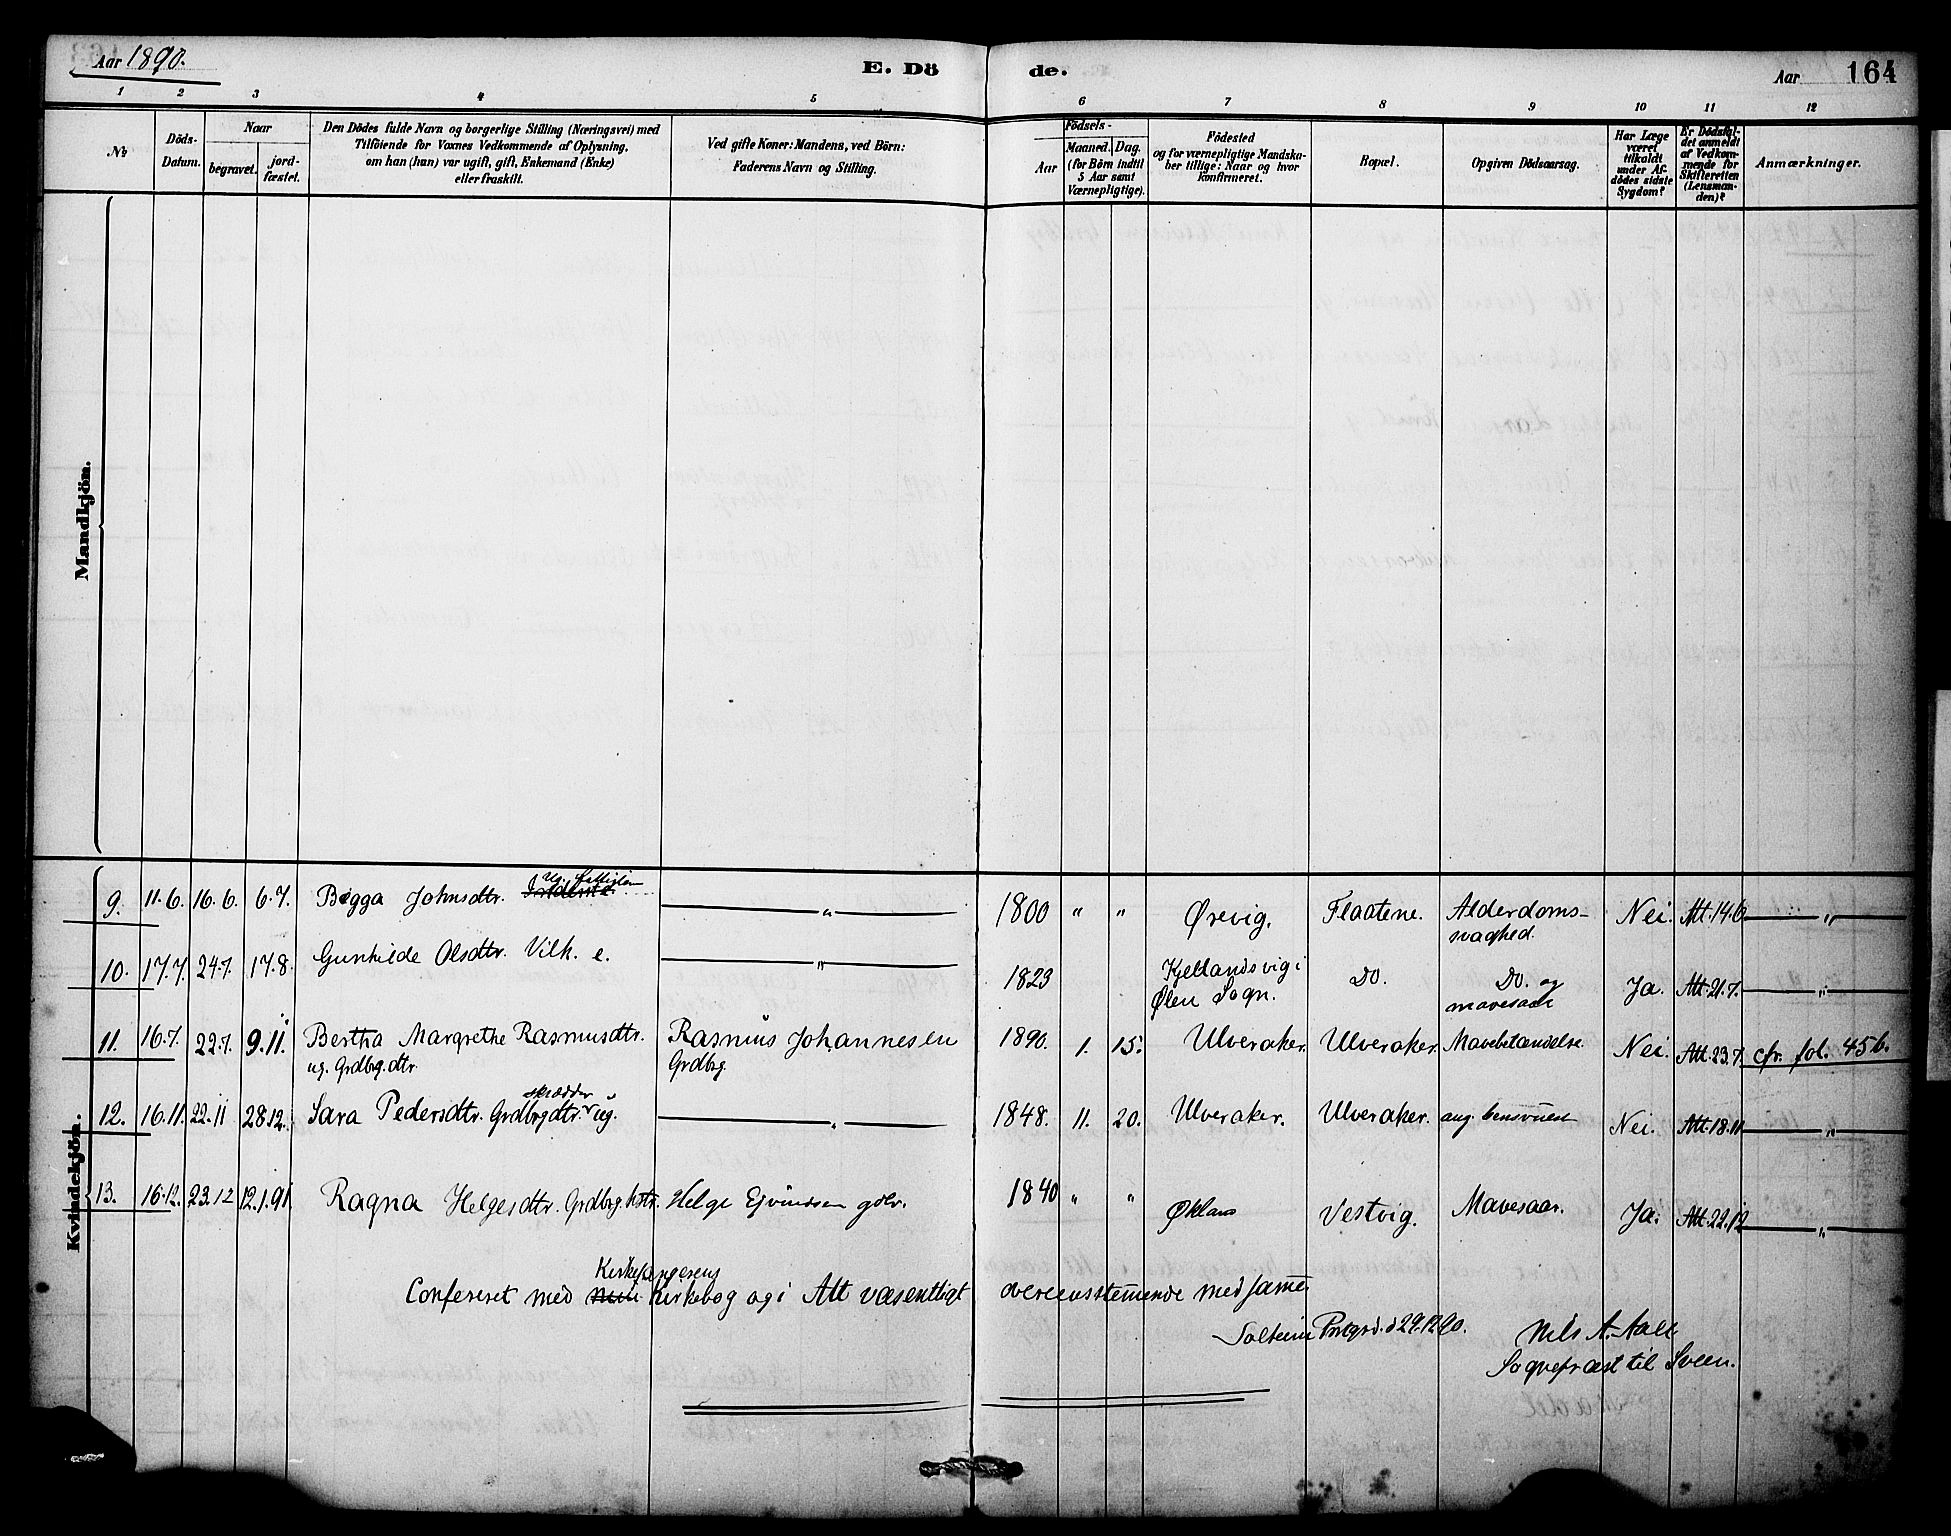 Aar 1890.
E. Dö de.
Aar 164
1 2 3 4 5 6 7 8 9 10 11 12
№
Döds-Datum.
Naar
begravet.
jord-fæstet.
Den Dödes fulde Navn og borgerlige Stilling (Næringsvei) med
Tilföiende for Voxnes Vedkommende af Oplysning,
om han (hun) var ugift, gift, Enkemand (Enke)
eller fraskilt.
Ved gifte Koner: Mandens, ved Börn:
Faderens Navn og Stilling.
Födsels-
Aar
Maaned. Dag.
(for Börn indtil
5 Aar samt
Værnepligtige).
Födested
og for værnepligtige Mandska-
ber tillige: Naar og hvor
konfirmeret.
Bopæl.
Opgiven Dödsaarsag.
Har Læge
været
tilkaldt
under Af-
dödes sidste
Sygdom?
Er Dödsfal-
det anmeldt
af Vedkom-
mende for
Skifteretten
(Lensman-
den)?
Anmærkninger.
Mandkjön.
Kvindekjön.
9. 11.6. 16.6. 6.7. Bøgga Johnsdtr. " 1800 " " Ørevig. Flaatene. Alderdoms-
svaghed. Nei. Att. 14.6 "
10. 17.7. 24.7. 17.8. Gunhilde Olsdtr. Vilk. e. " 1823 Kjellandsvig i
Ølen Sogn. Do. Do. og
mavesaar Ja. Att. 21.7. "
11. 16.7. 22.7. 9.11. Bertha Margrethe Rasmusdtr.
ug. Grdbrg.dtr. Rasmus Johannesen
Grdbrg. 1890. 1. 15. Ulveraker. Ulveraker. Mavebetændelse. Nei. Att. 23.7. cfr. fol. 456.
12. 16.11. 22.11 28.12. Sara Pedersdtr. Grdbrgdtr. ug. " 1848. 11. 20. Ulveraker. Ulveraker. Nei. Att. 18.11 "
13. 16.12. 23.12 12.1.91. Ragna Helgesdtr. Grdbrg. Helge Ejvindsen 1840 " " Økland Vestvig. Mavesaar. Ja. Att. 22.12 "
Kirkesangerens
Confereret med Kirkebog og i Alt væsentligt overeensstemende med samme.
Prstgrd. d 29.12.90.
Nils A. Aall
Sognepræst til Sveen.